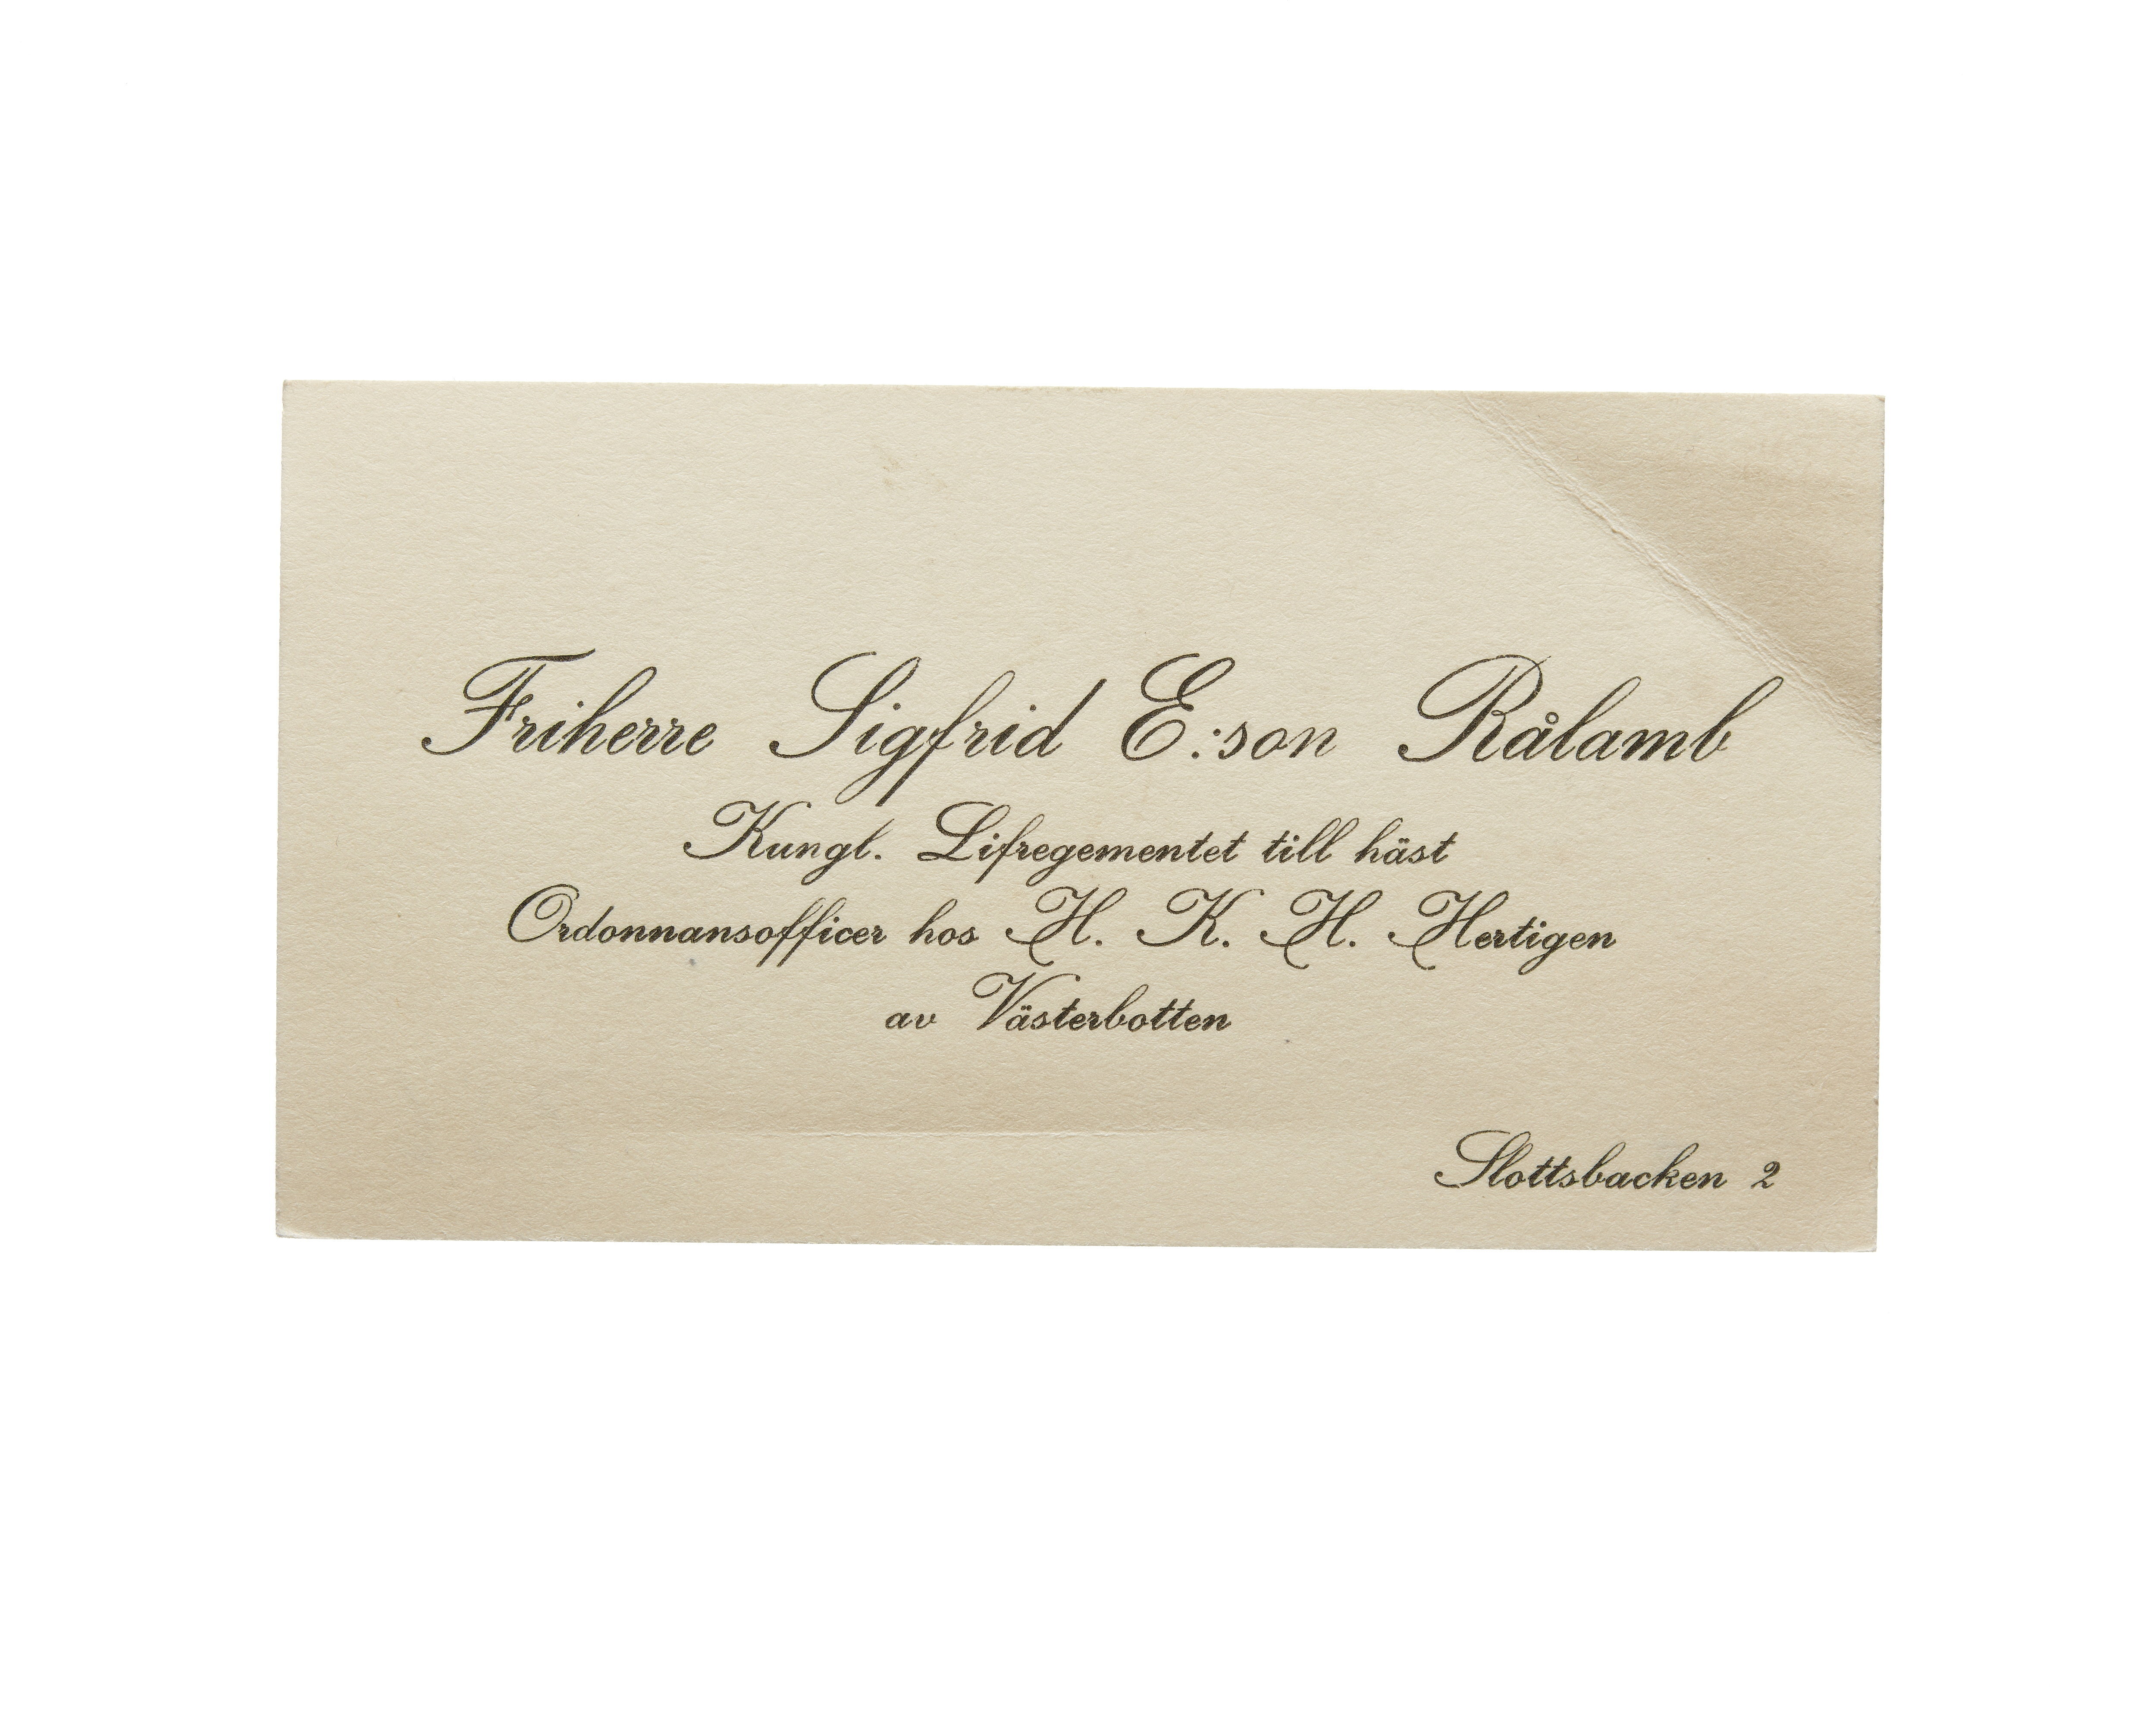 Friherre Sigfrid E:son Rålamb
Kungl. Lifregementet till häst
Ordonnansofficer hos H. K. H. Hertigen
av Västerbotten
Slottsbacken 2